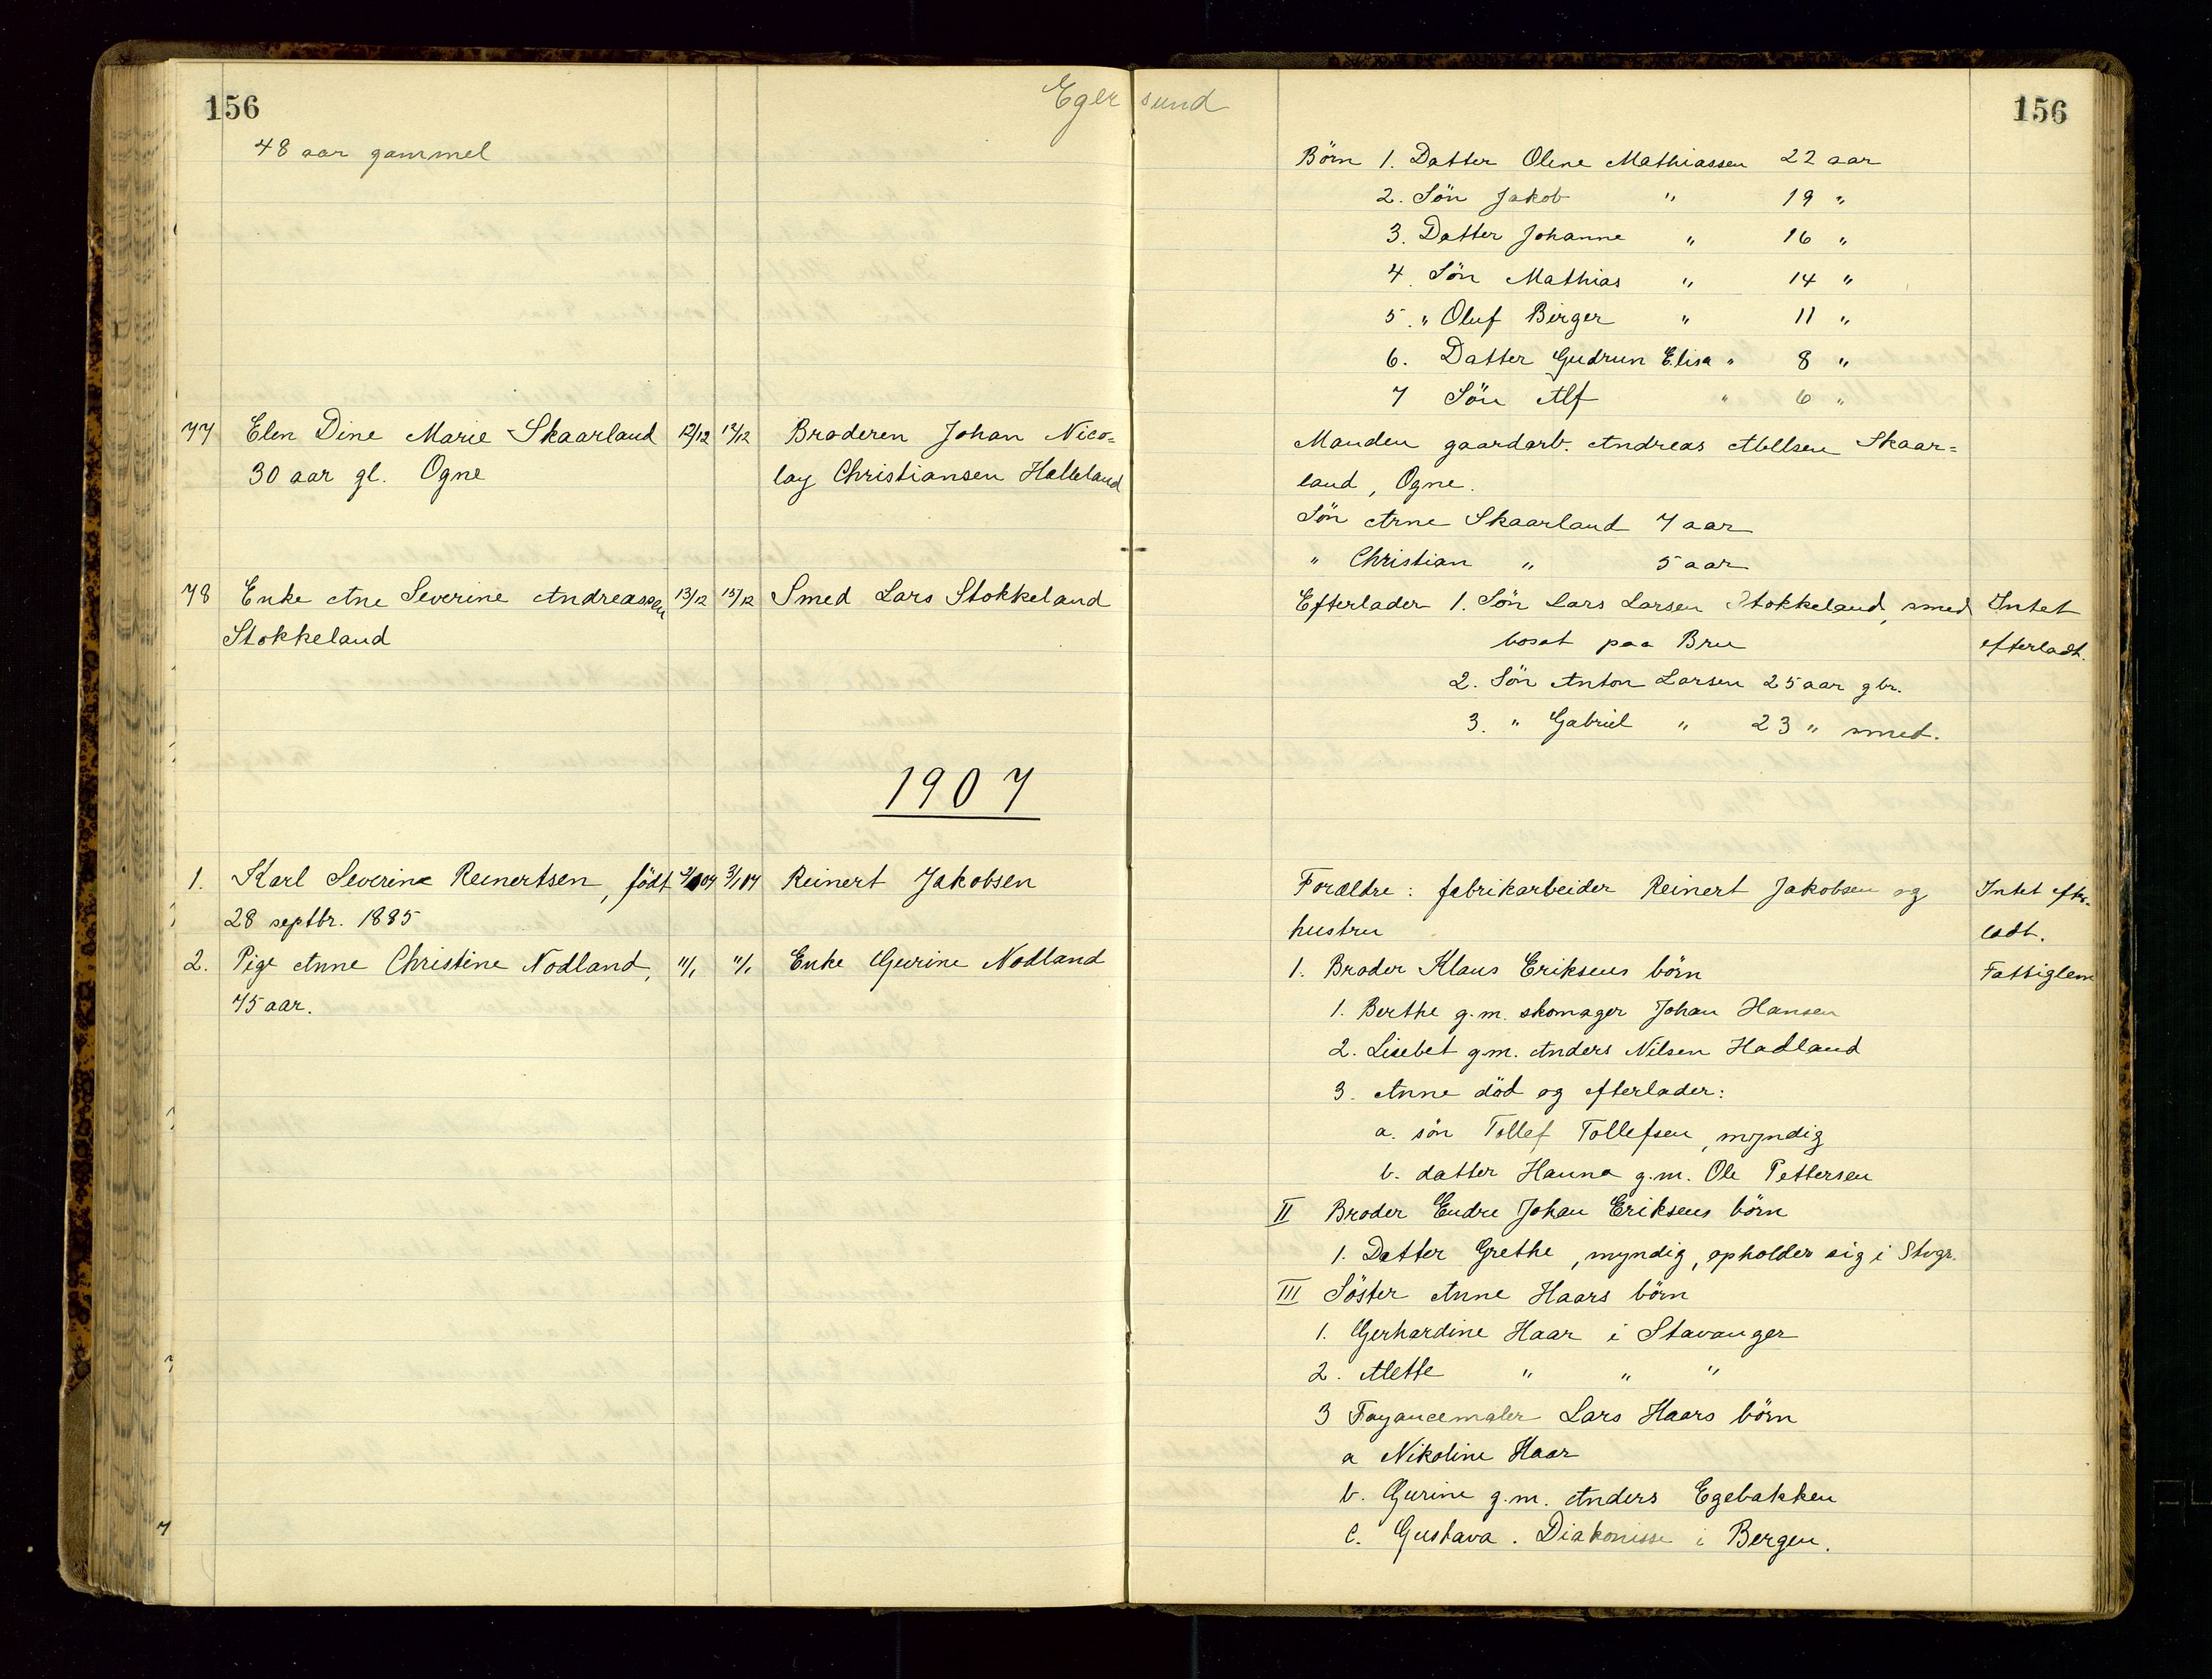 156
Egersund
156
48 aar gammel
Börn 1. Datter Oline Mathiassen 22 aar
2. Sön Jakob " 19 "
3. Datter Johanne " 16 "
4. Sön Mathias " 14 "
5. " Oluf Birger " 11 "
6. Datter Gudrun Elisa " 8 "
7 Sön Alf " 6 "
77 Elen Dine Marie Skaarland 12/12 12/12 Broderen Johan Nico=
30 aar gl. Ogne lay Christiansen Helleland
Manden gaardarb. Andreas Skaar=
land, Ogne.
Sön Arne Skaarland 7 aar
" Christian " 5 aar
78 Enke Ane Severine Andreassen 13/12 15/12 Smed Lars Stokkeland
Stokkeland
Efterlader 1. Sön Lars Larsen Stokkeland, smed Intet
bosat paa Bru efterladt.
2. Sön Anton Larsen 25 aar gbr.
3. " Gabriel " 23 " smed.
1907
1. Karl Severin Reinertsen, födt 3/1 07 Reinert Jakobsen
28 septbr. 1885
Forældre: fabrikarbeider Reinert Jakobsen og Intet efter-
hustru ladt.
2. Pige Anne Christine Nodland, 11/1 11/1 Enke Gurine Nodland
75 aar.
1. Broder Klaus Eriksens börn Fattiglem
1. Berthe g.m. skomager Johan Hansen
2. Lisebet g.m. Anders Nilsen Hadland
3. Anne död og efterlader:
a. sön Tollef Tollefsen, myndig
b. datter Hanna g.m. Ole Pettersen
II Broder Endre Johan Eriksens börn
1. Datter Grethe, myndig, opholder sig i Stvgr.
III Söster Anne Haars börn
1. Gerhardine Haar i Stavanger
2. Mette " " "
3 Fayancemaler Lars Haars börn
a Nikoline Haar
b. Gurine g.m. Anders Egebakken
c. Gustava. Diakonisse i Bergen.